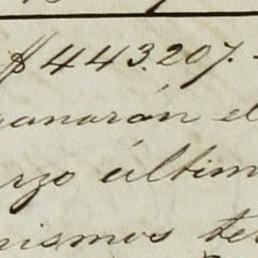 $443.207.-
ganarán el
rzo último
mismos te